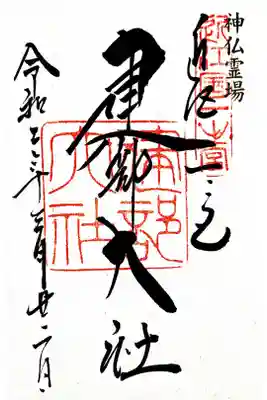 神仏霊場
近江一之宮
建部大社
令和三年三月廿二日
建部大社